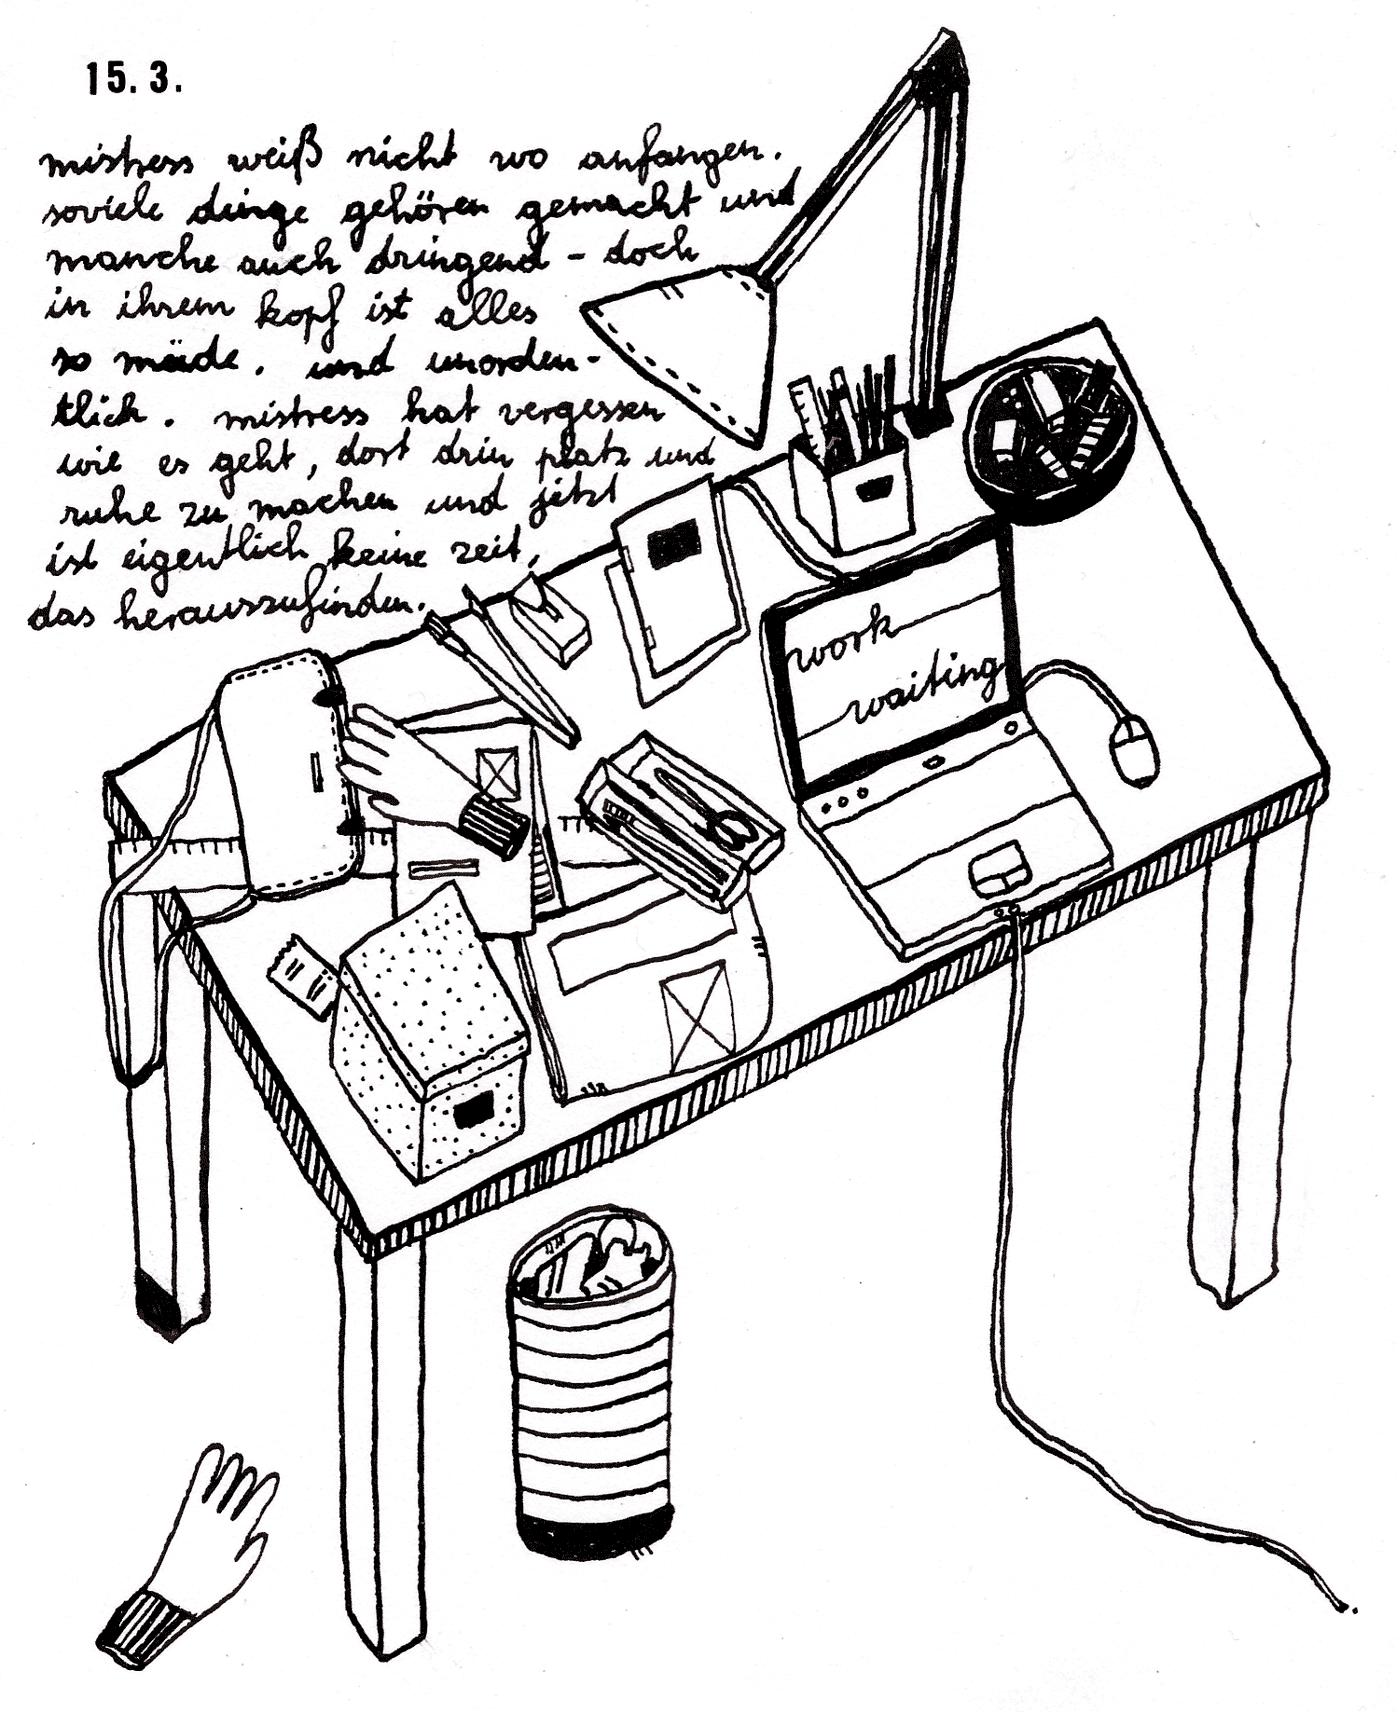 15. 3.
mistress weiß nicht wo anfangen.
soviele dinge gehören gemacht und
manche auch dringend - doch
in ihrem kopf ist alles
so müde. und unorden-
tlich. mistress hat vergessen
wie es geht, dort drin platz und
ruhe zu machen und jetzt
ist eigentlich keine zeit,
das herauszufinden.
work
waiting